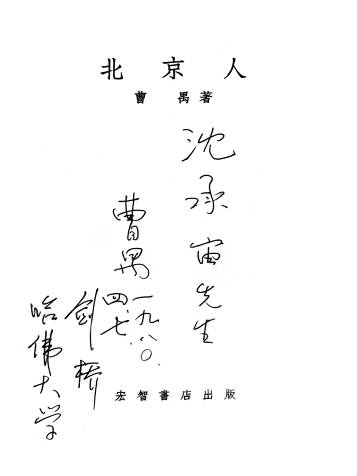 北京人
曹禺著
沈承宙先生
曹禺
一九八〇.
四.七.
剑桥
哈佛大学
宏智書店出版